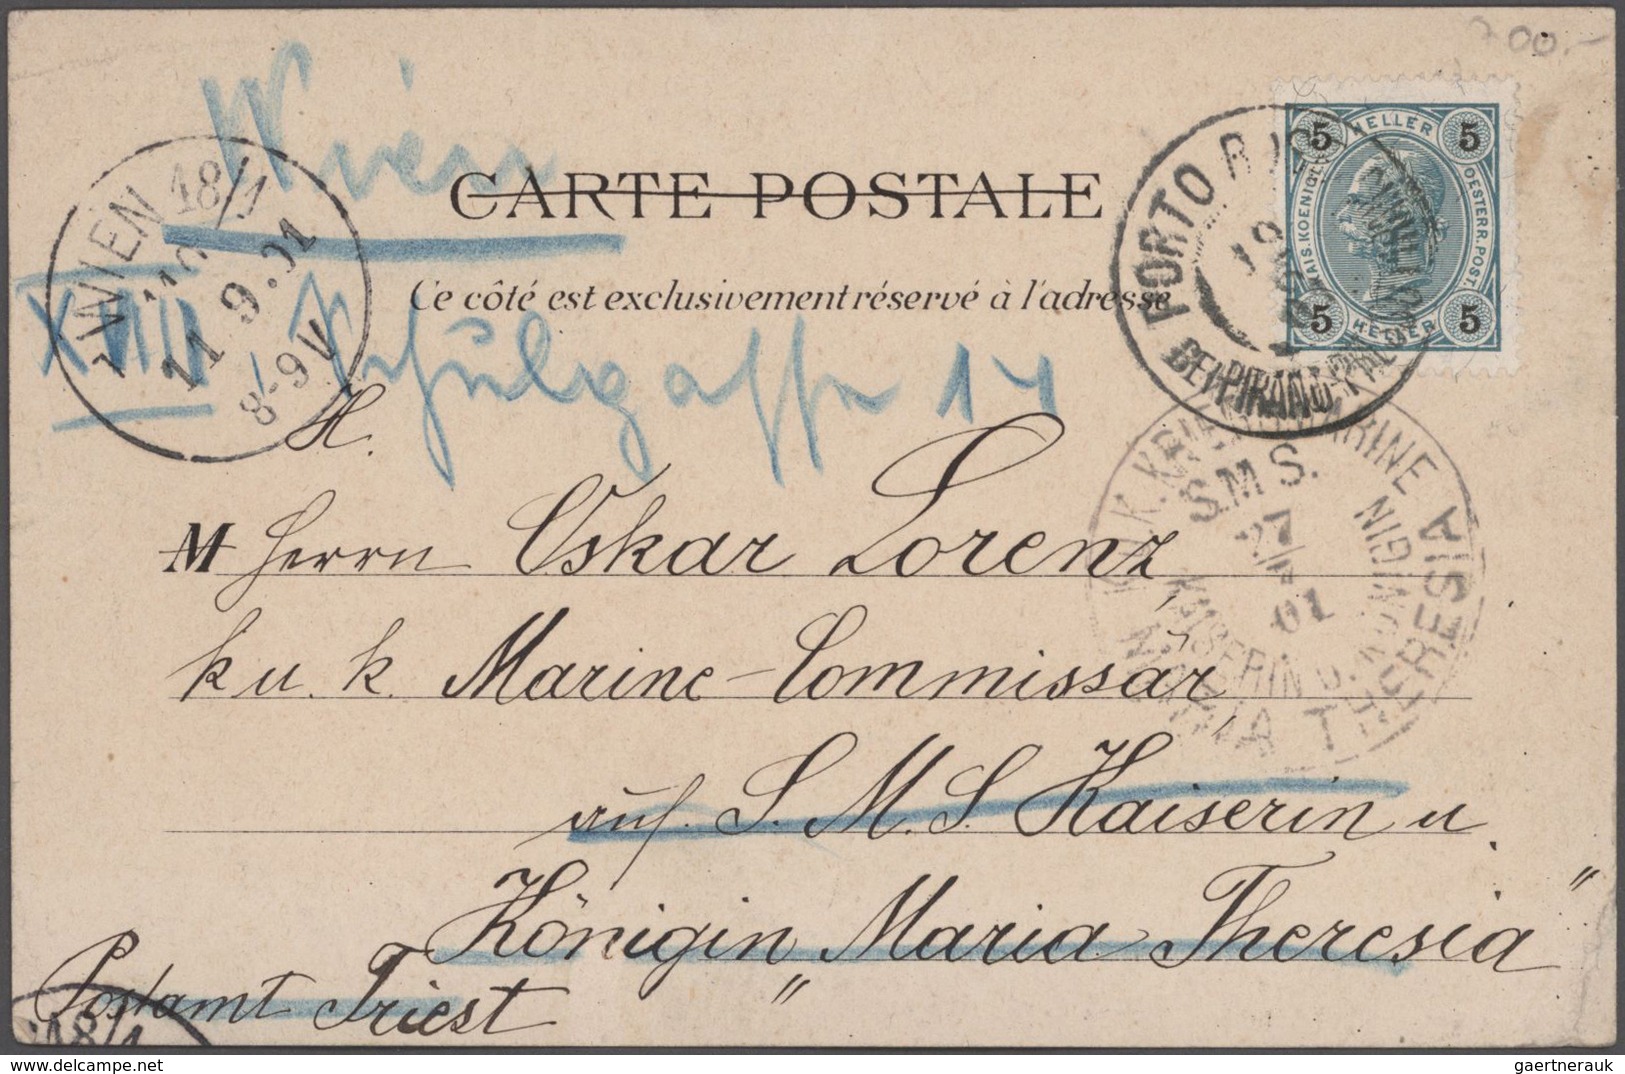 Wien
CARTE POSTALE
Ce côté est exclusivement réservé à l'adresse
XVIII, Schulgasse 14
H.
M Herrn Oskar Lorenz
k. u. k. Marine-Commissär
auf S. M. S. Kaiserin u.
Königin „Maria Theresia“
Postamt Triest
WIEN 18/1
110
11 9.01
8-9V
PORTO R
BEI PIRANO
5 HELLER 5
KAIS. KOENIGL. OESTERR. POST.
5 HELLER 5
K.U.K. KRIEGSMARINE
S.M.S.
27
01
KAISERIN U. KÖNIGIN
MARIA THERESIA
18/1
gaertnerauk